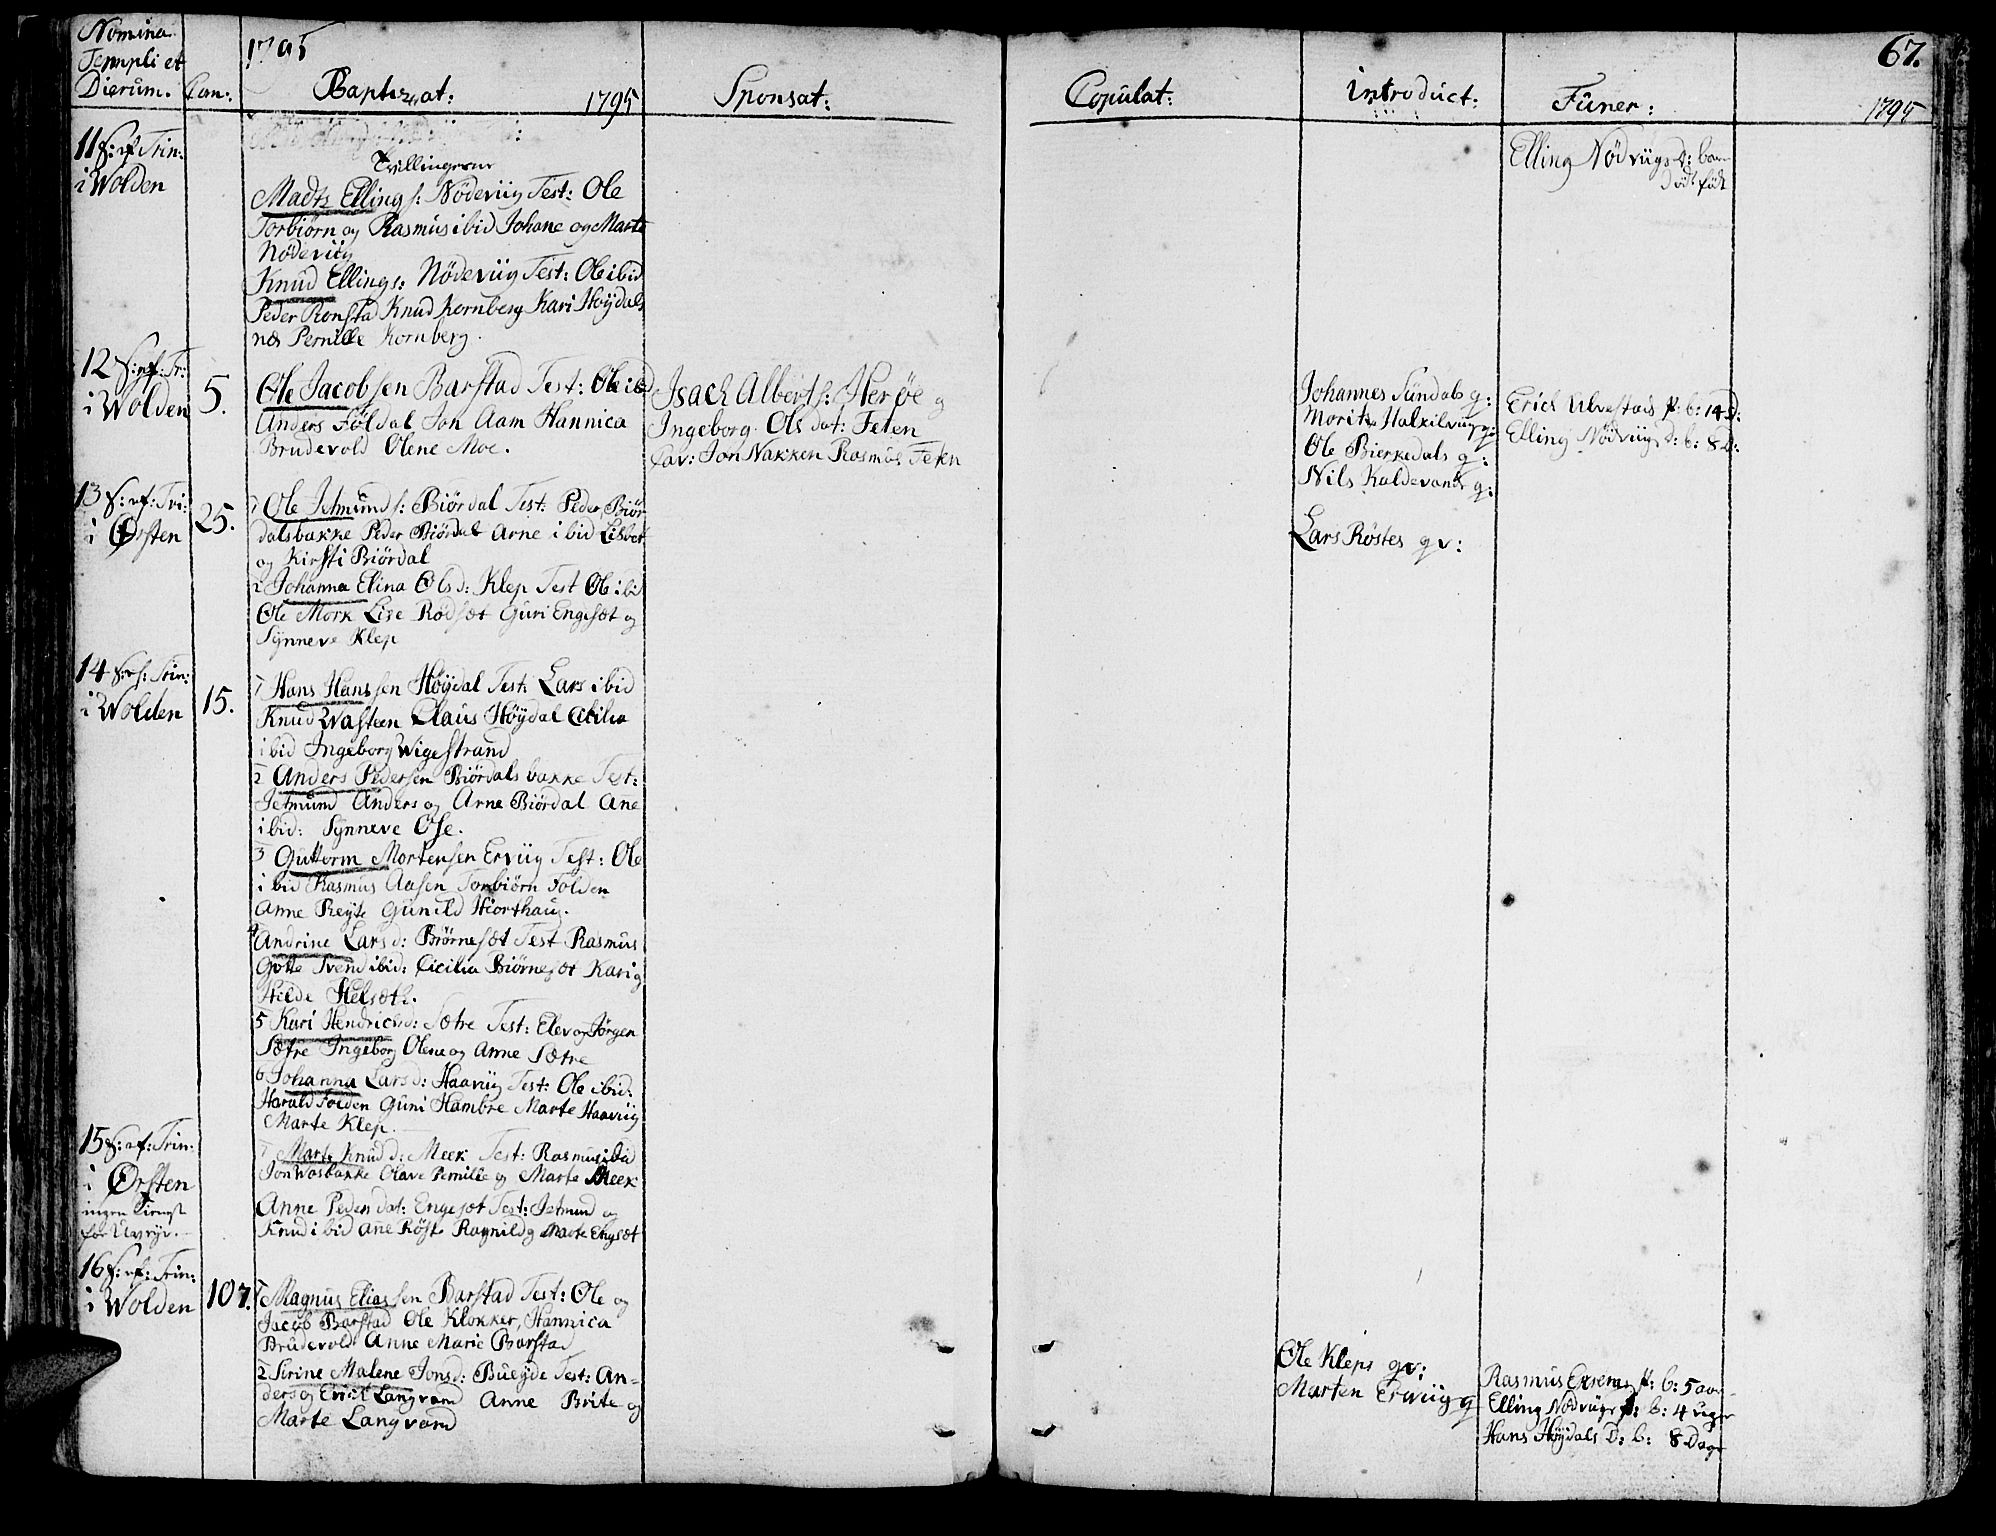 Nomina
Templi et
Dierum. Com:
1795
Baptizat: 1795
Sponsat:
Copulat:
introduct:
Funer: 1795
67.
11 S: ef Trin:
i Wolden
Tvillingerne
Madtz Elling s: Nödevüg Test: Ole
Torbiørn og Rasmus ibid Johane og Marte
Nödevüg
Knud Ellings: Nödevüg Test: Ole ibid
Peder Ronstad Knud Kornberg Kari Höydals
nes Pernille Kornberg.
Elling Nödvügs D: barn
död föd
12 S: ef: Tr:
i Wolden 5.
Ole Jacobsen Barstad Test: Ole ibid
Anders Földal Jon Aam Hannica
Brudevold Olene Moe.
Isach Alberts: Herøe og
Ingeborg Ols dat: Feten
Cav: Jon Nakken Rasmus Feten
Johannes Sundals q:
Moritz q:
Ole Bierkedals q:
Nils Kaldevands q:
Erich Ulvestads b: 14 D:
Elling Nödvügs D: b: 8 D:
13 S: ef: Tri:
i Ørsten 25.
1 Ole Jetmunds: Biördal Test: Peder Biör
dalsbakke Peder Biördal Arne ibid Lisbet
og Kirsti Biördal
2 Johanna Elina Ols d: Klep Test Ole ibid
Ole Mork Lise Rödsæt Guri Engesæt og
Synneve Klep
Lars Röstes q v:
14 S: ef: Trin:
i Wolden 15.
1 Hans Hanssen Höydal Test: Lars ibid
Knud Wasteen Claus Höydal Cicilia
ibid Ingeborg Wigestrand
2 Anders Pedersen Biördals bakke Test:
Jetmund Anders og Arne Biördal Ane
ibid: Synneve Ose.
3 Guttorm Mortensen Ervüg Test: Ole
ibid Rasmus Aasen Torbiörn Folden
Anne Reyte Gunild Hiorthaug.
4 Andrine Lars d: Biörnesæt Test Rasmus
Gotte Svend ibid: Cicilia Biörnesæt Kari og
Hilde Helsæth.
5 Kari Hendrichsd: Sætre Test: Elev og Jörgen
Sætre Ingeborg Olene og Anne Sætre
6 Johanna Lars d: Haavüg Test: Ole ibid:
Harald Folden Guni Hambre Marte Haavüg
Marte Klep.
15 S: ef: Trin:
i Ørsten
ingen
for
1 Marte Knud d: Meek Test: Rasmus ibid
Jon Wasbakke Olave Pernille og Marte Meek
Anne Peders dat: Engesæt Test: Jetmund og
Knud ibid Ane Röste Ragnild og Marte Engsæt
16 S: ef: Trin:
i Wolden 107.
1 Magnus Eliassen Barstad Test: Ole og
Jacob Barstad Ole Klokker, Hannica
Brudevold Anne Marie Barstad
2 Sirine Malene Jons d: Bueyde Test: An-
ders og Erich Langvam Anne Brite og
Marte Langvam
Ole Kleps q v:
Marten Ervüg q
Rasmus b: 5 aar
Elling Nödvügs b: 4 uger
Hans Höydals D: b: 8 Dage